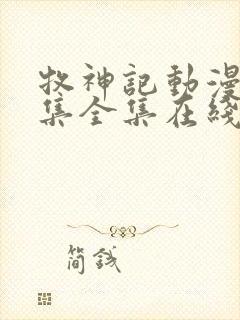 牧神記動漫
集全集在綫
簡錢